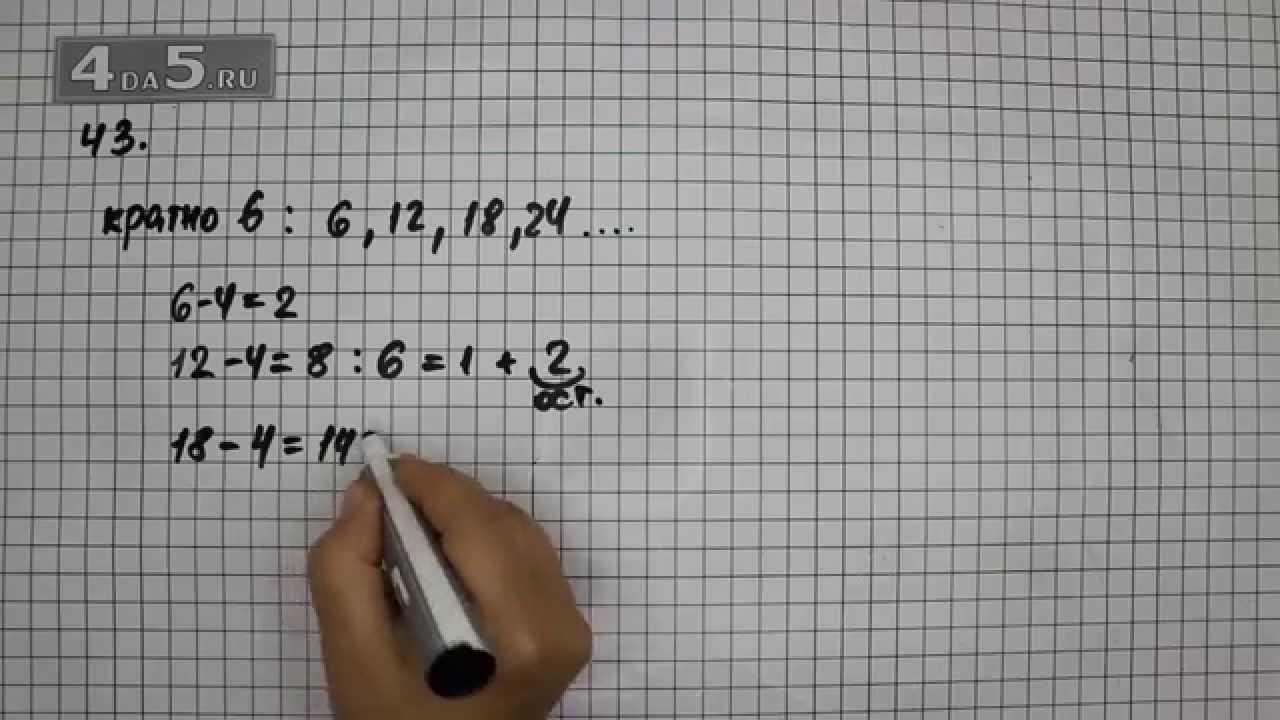 4DA5.RU
43.
кратно 6 : 6, 12, 18, 24 ....
6-4=2
12-4=8 : 6 = 1 + 2
ост.
18-4=14